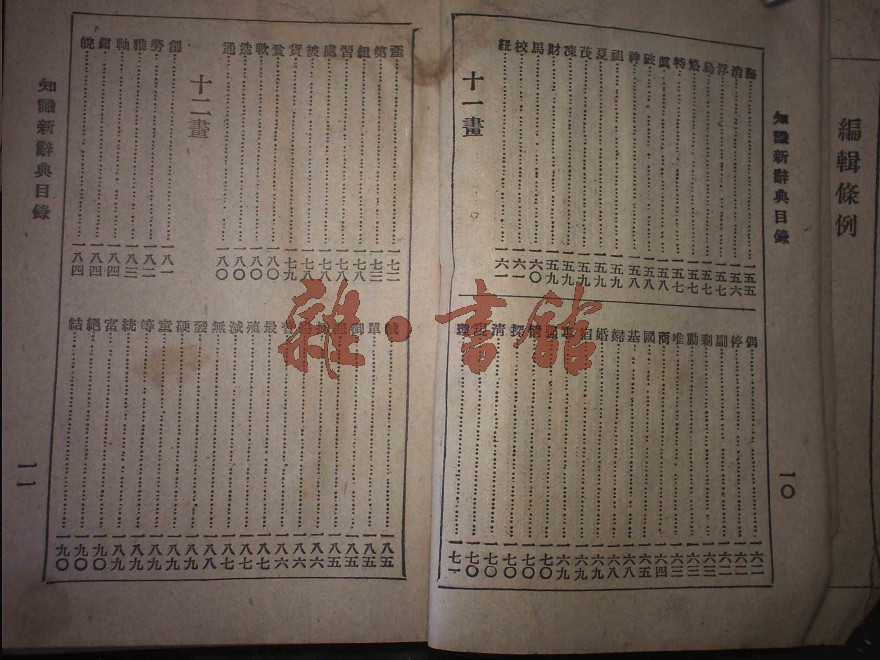 編輯條例
知識新辭典目錄
海 一五五
消 一五六
浮 一五七
烏 一五七
特 一五七
眞 一五八
破 一五八
神 一五八
祖 一五九
夏 一五九
茂 一五九
凍 一五九
財 一五九
馬 一六〇
校 一六一
紐 一六
十一畫
偶 一六二
停 一六二
副 一六二
剩 一六三
動 一六三
唯 一六三
商 一六四
國 一六五
基 一六八
婦 一六八
婚 一六九
專 一六九
情 一七〇
探 一七〇
清 一七〇
現 一七〇
理 一七一
一〇
第 一七三
組 一七八
習 一七八
處 一七八
被 一七八
貨 一七九
貧 一八〇
軟 一八〇
造 一八〇
通 一八〇
十二畫
創 一八一
勞 一八二
雅 一八三
軸 一八四
鉗 一八四
皖 一八四
單 一八五
最 一八六
殖 一八七
減 一八七
無 一八七
發 一八八
硬 一八九
童 一八九
等 一八九
統 一八九
富 一九〇
絕 一九〇
結 一九〇
知識新辭典目錄
一一
雜·書館